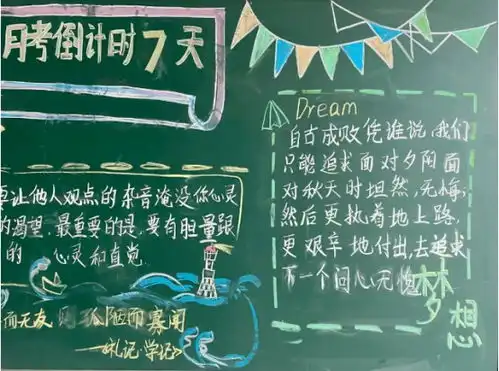 月考倒计时7天
要让他人观点的杂音淹没你心灵
的渴望.最重要的是.要有胆量跟
的 心灵和直觉
而无友 则孤陋而寡闻
—礼记·学记
Dream
自古成败凭谁说,我们
只能追求面对夕阳面
对秋天时坦然,无悔;
然后更执着地上路,
更艰辛地付出,去追求
下一个问心无愧
梦想